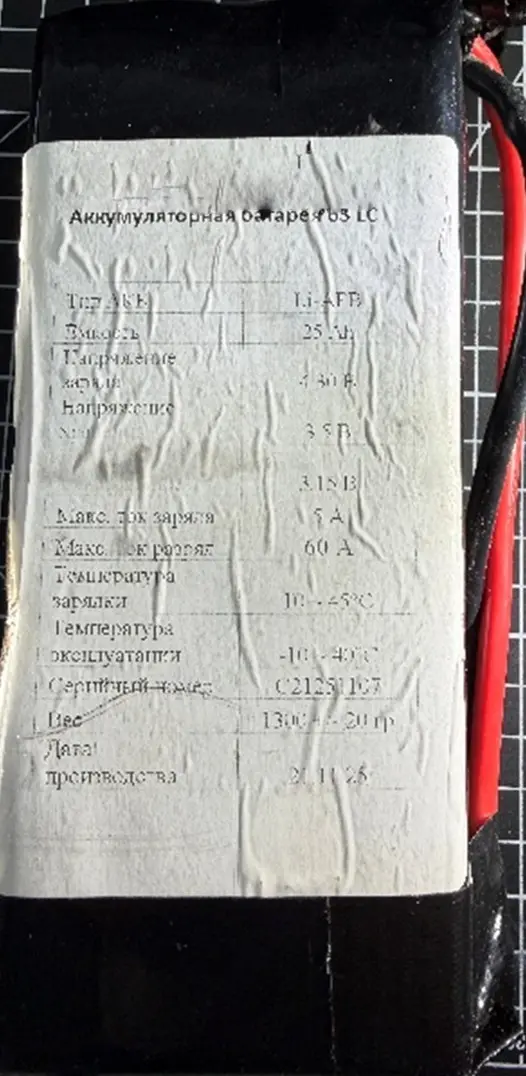 Аккумуляторная батарея 6S LC
Тип АКБ
Емкость 25 Ah
Напряжение
заряда 4.30 В
Напряжение
3.5 В
3.15 В
Макс. ток заряда 5 А
Макс. ток разряд 60 А
Температура
зарялки 10 - 45°C
Температура
эксплуатации -10 - 40°C
Серийный номер C21251107
Вес 1300 +/- 20 гр
Дата
производства 21.11.25